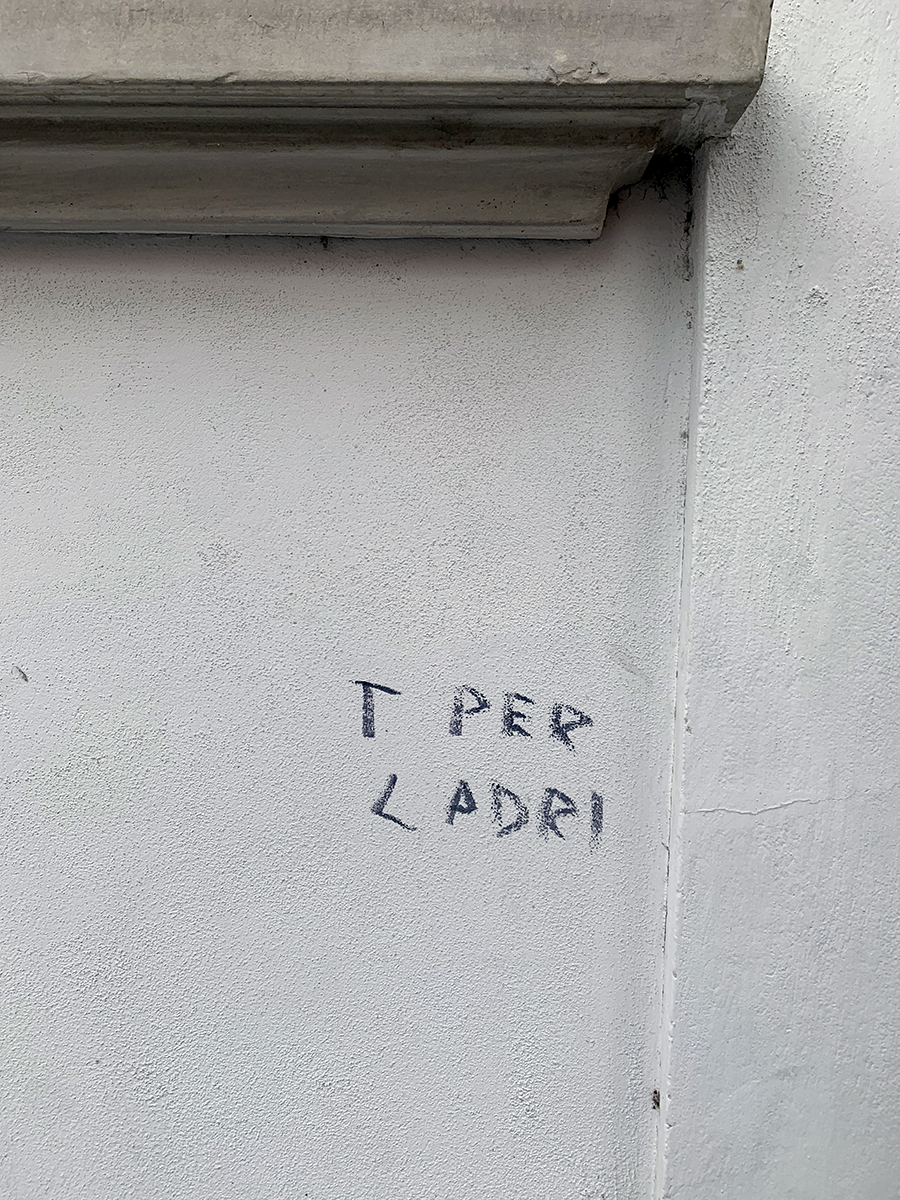 T PER
LADRI